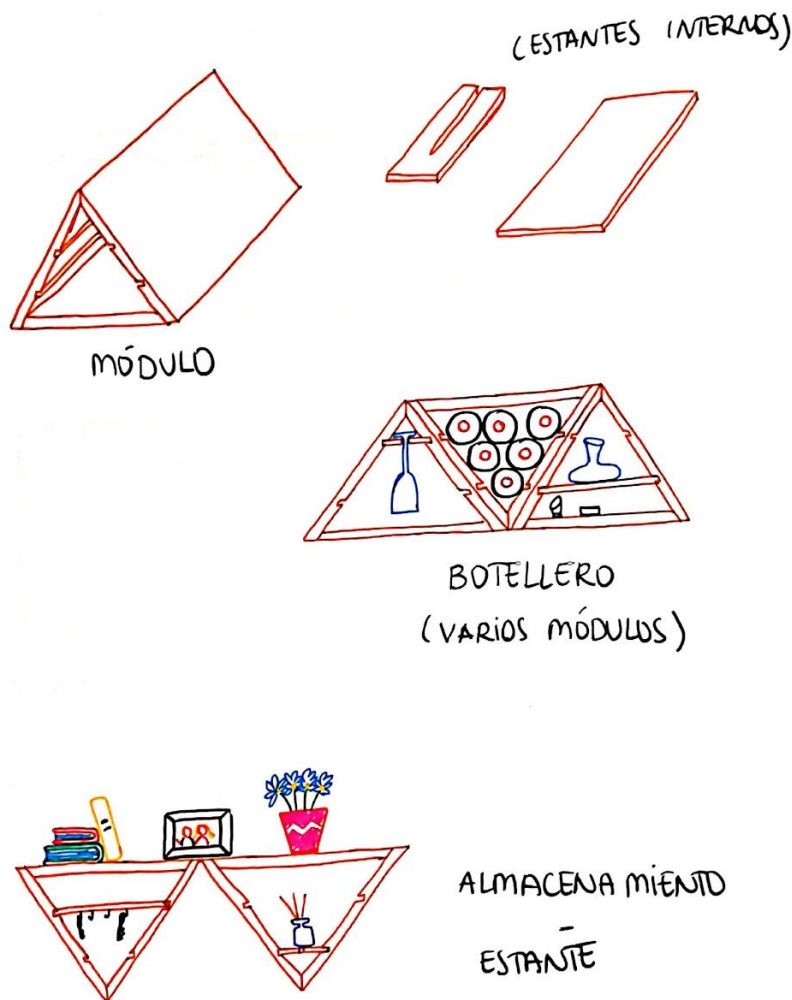 (ESTANTES INTERNOS)
MÓDULO
BOTELLERO
(VARIOS MÓDULOS)
ALMACENAMIENTO
-
ESTANTE